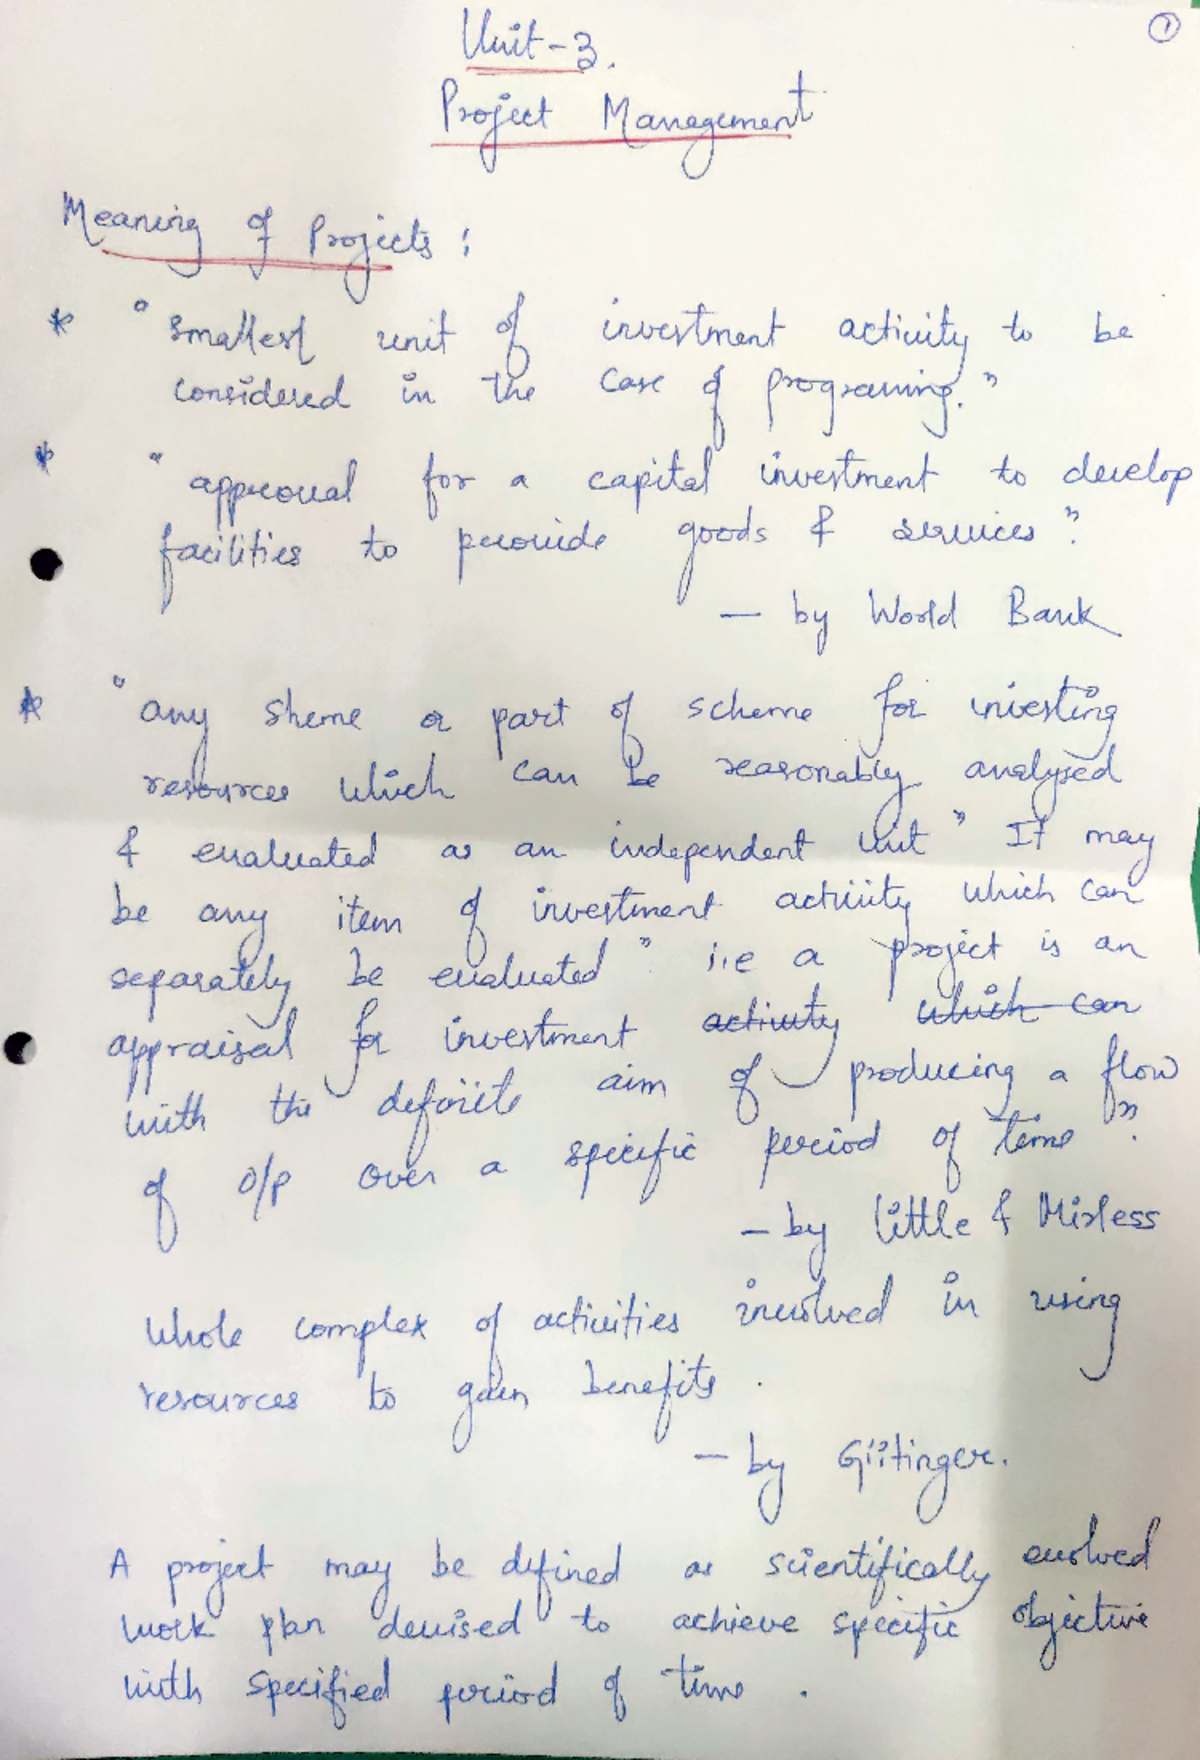 1
Unit-3.
Project Management
Meaning of Projects :
* "smallest unit of investment activity to be
considered in the case of programing."
* "approval for a capital investment to develop
facilities to provide goods & services".
- by World Bank
* "any sheme or part of scheme for investing
resources which can be reasonably analysed
& evaluated as an independent unit" It may
be any item of investment activity which can
separately be evaluated" i.e a project is an
appraisal for investment activity which can
with the definite aim of producing a flow
of O/P over a specific period of time".
- by Little & Mirless
Whole complex of activities involved in using
resources to gain benefits.
- by Gittinger.
A project may be defined as scientifically evolved
work plan devised to achieve specific objective
with specified period of time.